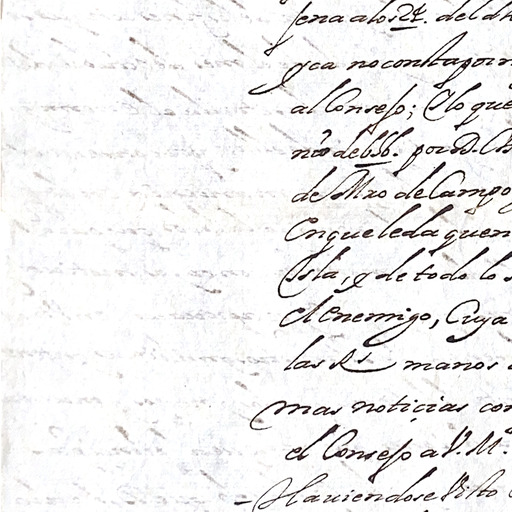 sena a los 27. del d
y ca no consta por
al Consejo; Y lo que
de 656. por D.
de Mro de Campo
En que le da quen
Isla, y de todo lo
el enemigo, Cuya
las Rs manos
mas noticias con
el Consejo a V. Md.
- Hauiendose Visto